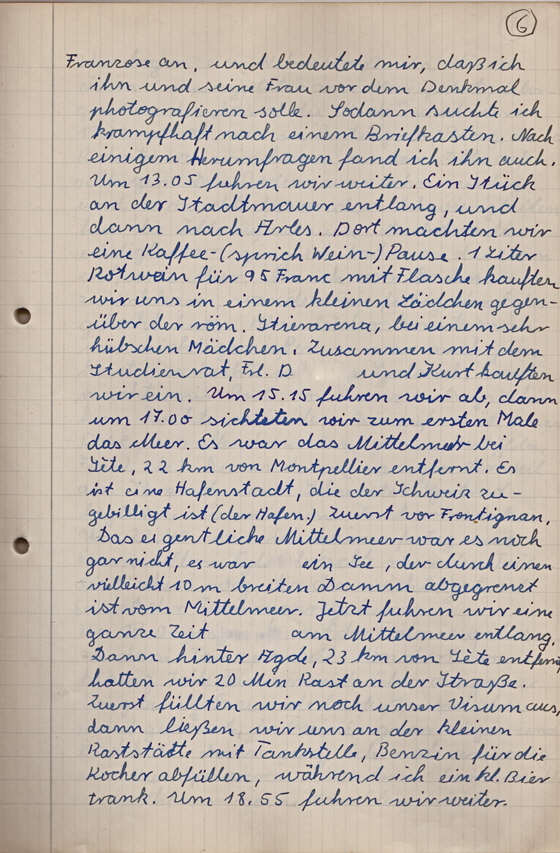 6
Franzose an, und bedeutete mir, daß ich
ihn und seine Frau vor dem Denkmal
photografieren solle. Sodann suchte ich
krampfhaft nach einem Briefkasten. Nach
einigem Herumfragen fand ich ihn auch.
Um 13.05 fuhren wir weiter. Ein Stück
an der Stadtmauer entlang, und
dann nach Arles. Dort machten wir
eine Kaffee-(sprich Wein-) Pause. 1 Liter
Rotwein für 95 Franc mit Flasche kauften
wir uns in einem kleinen Lädchen gegen-
über der röm. Stierarena, bei einem sehr
hübschen Mädchen. Zusammen mit dem
Studienrat, Frl. D und Kurt kauften
wir ein. Um 15.15 fuhren wir ab, dann
um 17.00 sichteten wir zum ersten Male
das Meer. Es war das Mittelmeer bei
Sète, 22 km von Montpellier entfernt. Es
ist eine Hafenstadt, die der Schweiz zu-
gebilligt ist (der Hafen.) Zuerst vor Frontignan.
Das eigentliche Mittelmeer war es noch
gar nicht, es war ein See, der durch einen
vielleicht 10 m breiten Damm abgegrenzt
ist vom Mittelmeer. Jetzt fuhren wir eine
ganze Zeit am Mittelmeer entlang.
Dann hinter Agde, 23 km von Sète entfernt,
hatten wir 20 Min Rast an der Straße.
Zuerst füllten wir noch unser Visum aus,
dann ließen wir uns an der kleinen
Raststätte mit Tankstelle, Benzin für die
Kocher abfüllen, während ich ein kl. Bier
trank. Um 18.55 fuhren wir weiter.